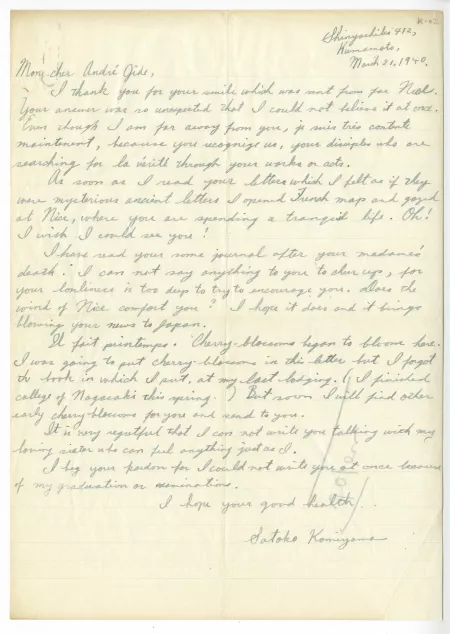 Shinyashiki 412,
Kumamoto,
March 21, 1940.
Mon cher André Gide,
I thank you for your smile which was sent from far Nice.
Your answer was so unexpected that I could not believe it at once.
Even though I am far away from you, je suis très contente
maintenent, because you recognize us, your disciples who are
searching for la vérité through your works or acts.
As soon as I read your letters which I felt as if they
were mysterious ancient letters I opened French map and gazed
at Nice, where you are spending a tranquil life. Oh!
I wish I could see you!
I have read your some journal after your madame's
death. I can not say anything to you to cheer up, for
your lonliness is too deep to try to encourage you. Does the
wind of Nice comfort you? I hope it does and it brings
blowing your news to Japan.
Il fait printemps. Cherry-blossoms began to bloom here.
I was going to put cherry-blossoms in this letter but I forgot
the book in which I put, at my last lodging. (I finished
college of Nagasaki this spring.) But soon I will find other
early cherry-blossoms for you and send to you.
It is very regretful that I can not write you talking with my
loving sister who can feel anything just as I.
I beg your pardon for I could not write you at once because
of my graduation or examinations.
I hope your good health.
Satoko Komiyama